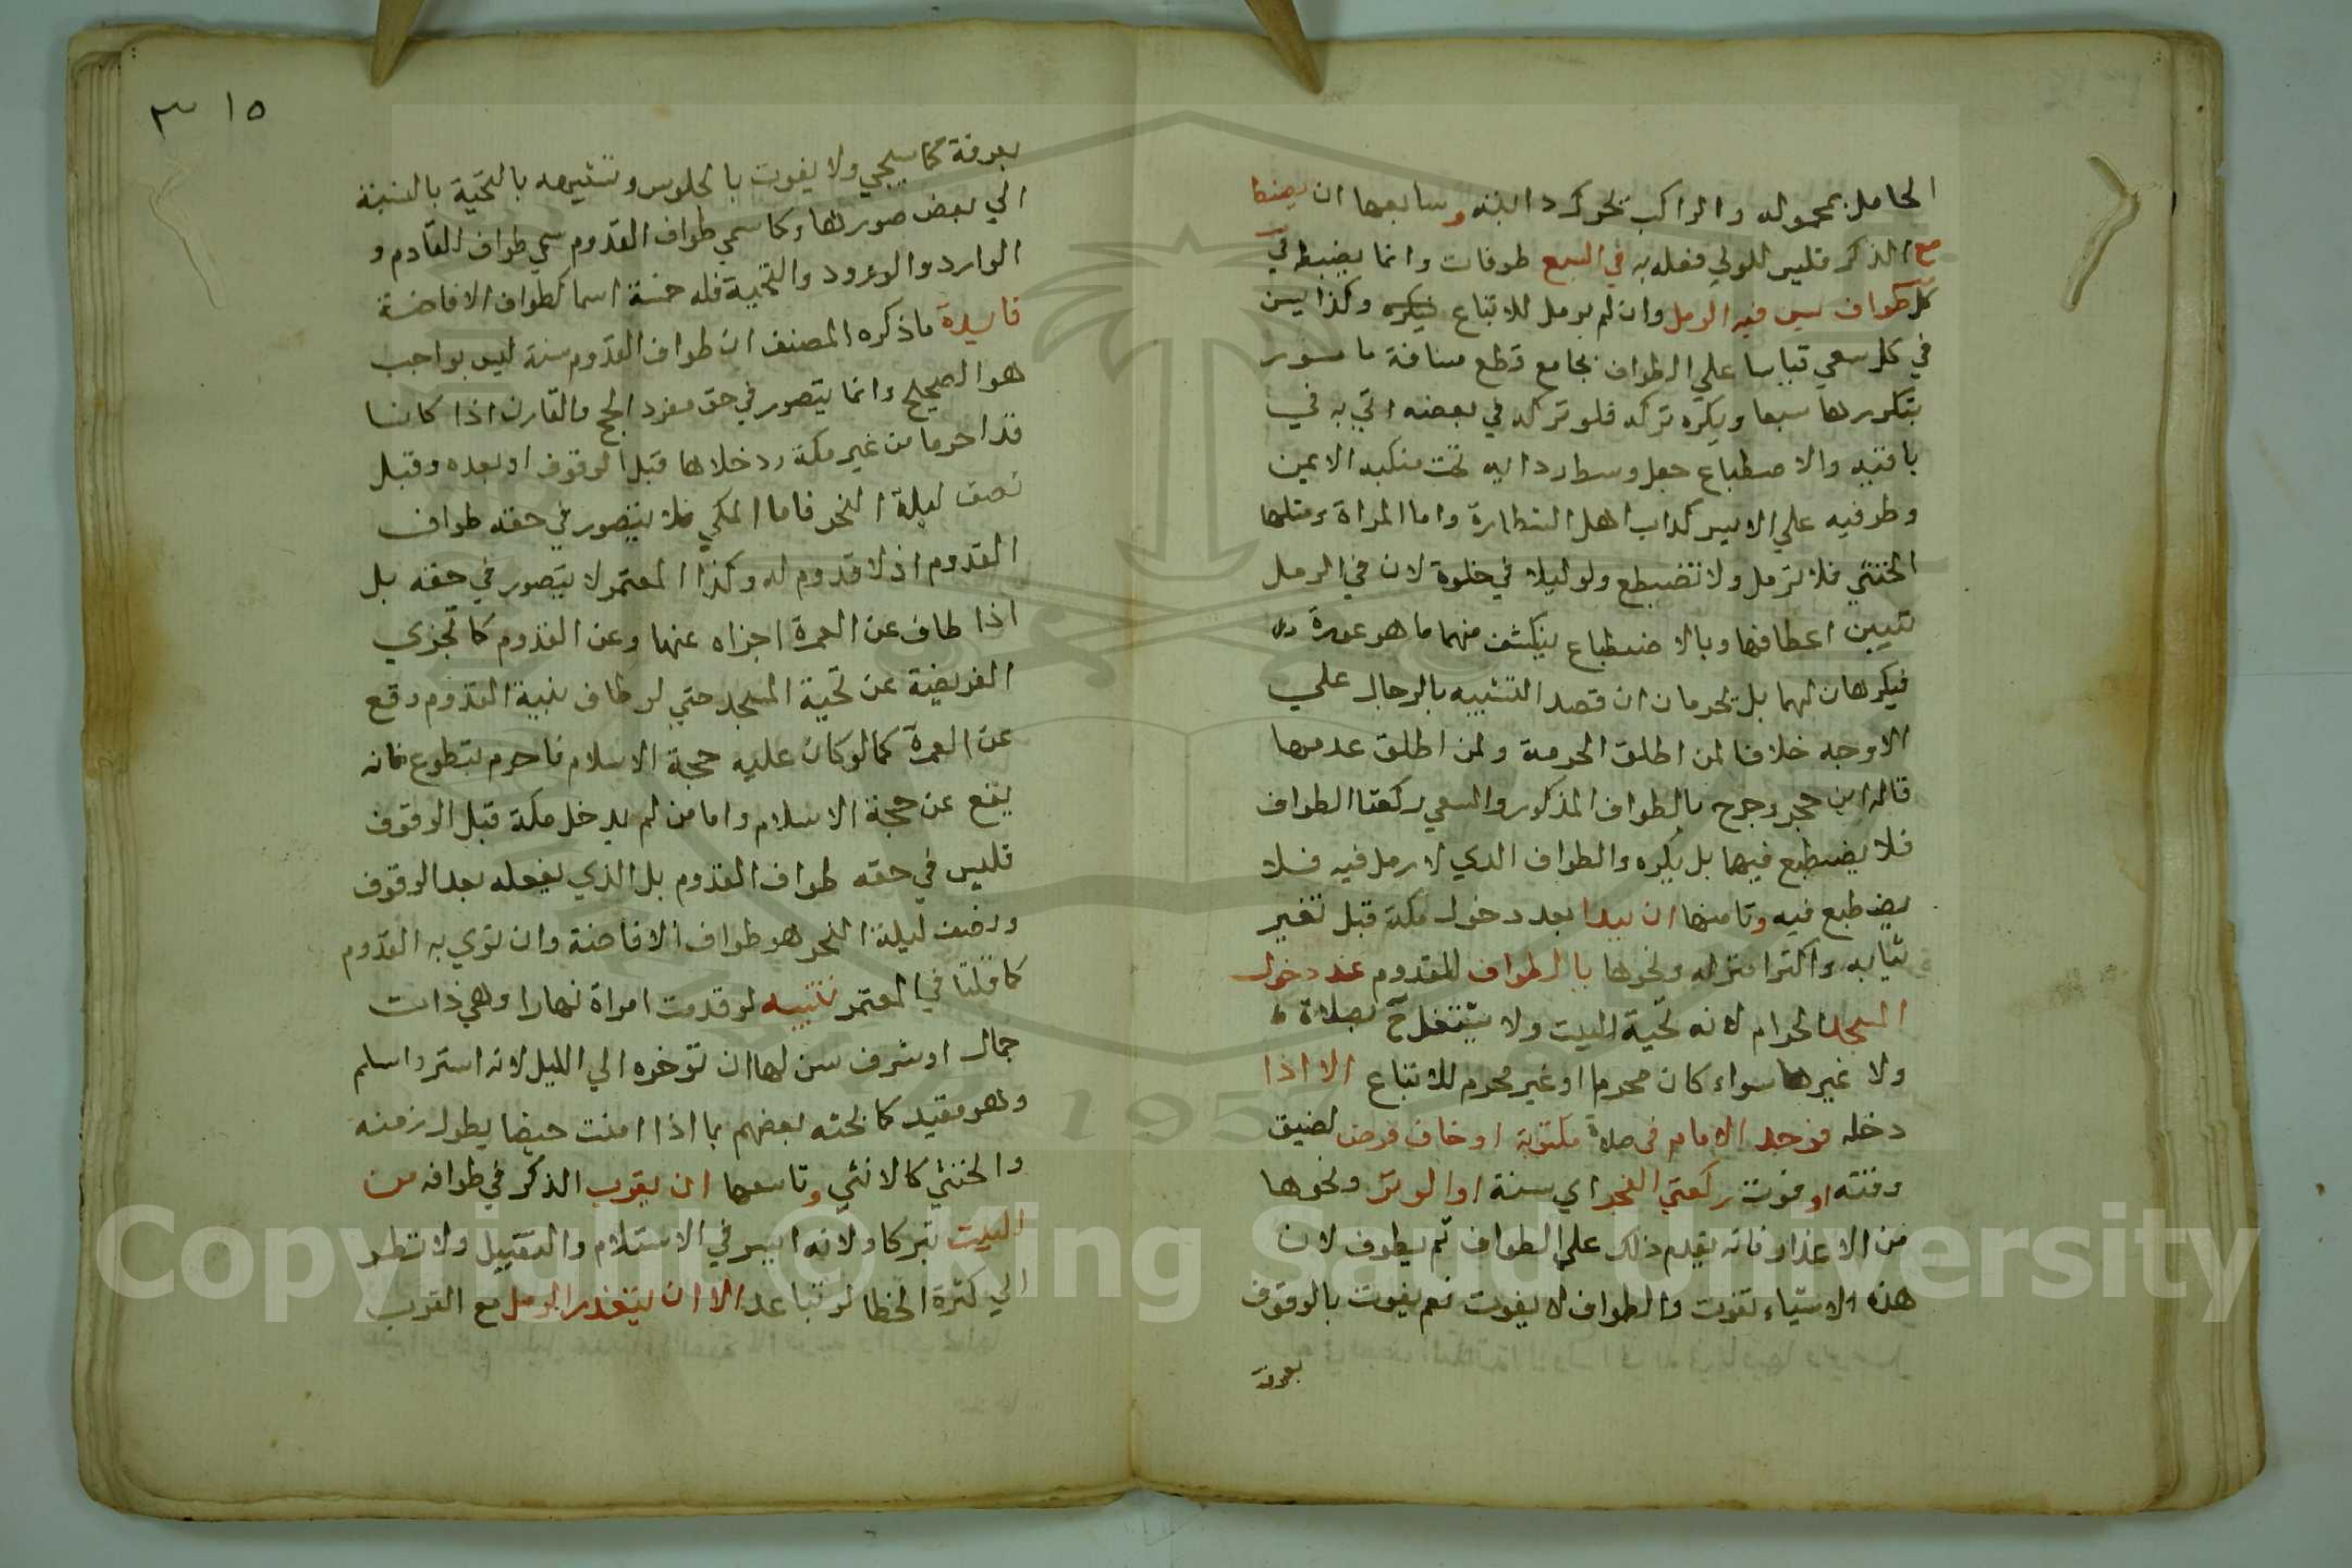 الحامل بمحموله والراكب يحرك دابته وسابعها ان يضطبع
الذكر فليس للولي فعله به في السبع طوفات وانما يضطبع في
كل طواف يسن فيه الرمل وان لم يرمل للاتباع فيكره وكذا يسن
في كل سعي قياسا علي الطواف بجامع قطع مسافة مامور
بتكررها سبعا ويكره تركه فلو تركه في بعضه اتي به في
باقيه والاضطباع جعل وسط ردايه تحت منكبه الايمن
وطرفيه علي الايسر كداب اهل الشطارة واما المراة ومثلها
الخنثي فلا ترمل ولا تضطبع ولو ليلا في خلوة لان في الرمل
تتبين اعطافها وبالاضطباع ينكشف منهما ما هو عورة
فيكرهان لهما بل يحرمان ان قصد التشبيه بالرجال علي
الاوجه خلافا لمن اطلق الحرمة ولمن اطلق عدمها
قاله ابن حجر وخرج بالطواف المذكور والسعي ركعتا الطواف
فلا يضطبع فيهما بل يكره والطواف الذي لا رمل فيه فلا
يضطبع فيه وثامنها ان يبدا بعد دخول مكة قبل تغير
ثيابه واكترا منزله ونحوها بالطواف للقدوم عند دخول
المسجد الحرام لانه تحية البيت ولا يشتغل ح بصلاة
ولا غيرها سواء كان محرما او غير محرم للاتباع الا اذا
دخله فوجد الامام في صلاة مكتوبة او خاف فوت فرض لضيق
وقته او فوت ركعتي الفجر اي سنة او الوتر ونحوها
من الاعذار فانه يقدم ذلك علي الطواف ثم يطوف لان
هذه الاشياء تفوت والطواف لا يفوت نعم يفوت بالوقوف
بعرفة
١٥ ٣
بعرفة كما سيجي ولا يفوت بالجلوس وتشبيهه بالتحية بالنسبة
الي بعض صورها وكما سمي طواف القدوم سمي طواف القادم و
الوارد والورود والتحية فله خمسة اسما كطواف الافاضة
فايدة ما ذكره المصنف ان طواف القدوم سنة ليس بواجب
هو الصحيح وانما يتصور في حق مفرد الحج والقارن اذا كانا
قد احرما من غير مكة ودخلاها قبل الوقوف او بعده وقبل
نصف ليلة النحر فاما المكي فلا يتصور في حقه طواف
القدوم اذ لا قدوم له وكذا المعتمر لا يتصور في حقه بل
اذا طاف عن العمرة اجزاه عنها وعن القدوم كما تجزي
الفريضة عن تحية المسجد حتي لو طاف بنية القدوم وقع
عن العمرة كما لو كان عليه حجة الاسلام فاحرم بتطوع فانه
يقع عن حجة الاسلام واما من لم يدخل مكة قبل الوقوف
فليس في حقه طواف القدوم بل الذي يفعله بعد الوقوف
ونصف ليلة النحر هو طواف الافاضة وان نوي به القدوم
كما قلنا في المعتمر تنبيه لو قدمت امراة نهارا وهي ذات
جمال او شرف سن لها ان توخره الي الليل لانه استر واسلم
وهو مقيد كما بحثه بعضهم بما اذا امنت حيضا يطول زمنه
والخنثي كالانثي وتاسعها ان يقرب الذكر في طوافه من
البيت تبركا ولانه ايسر في الاستلام والتقبيل ولا نظر
الي كثرة الخطا لو تباعد الا ان يتعذر الرمل مع القرب
Copyright © King Saud University
1957